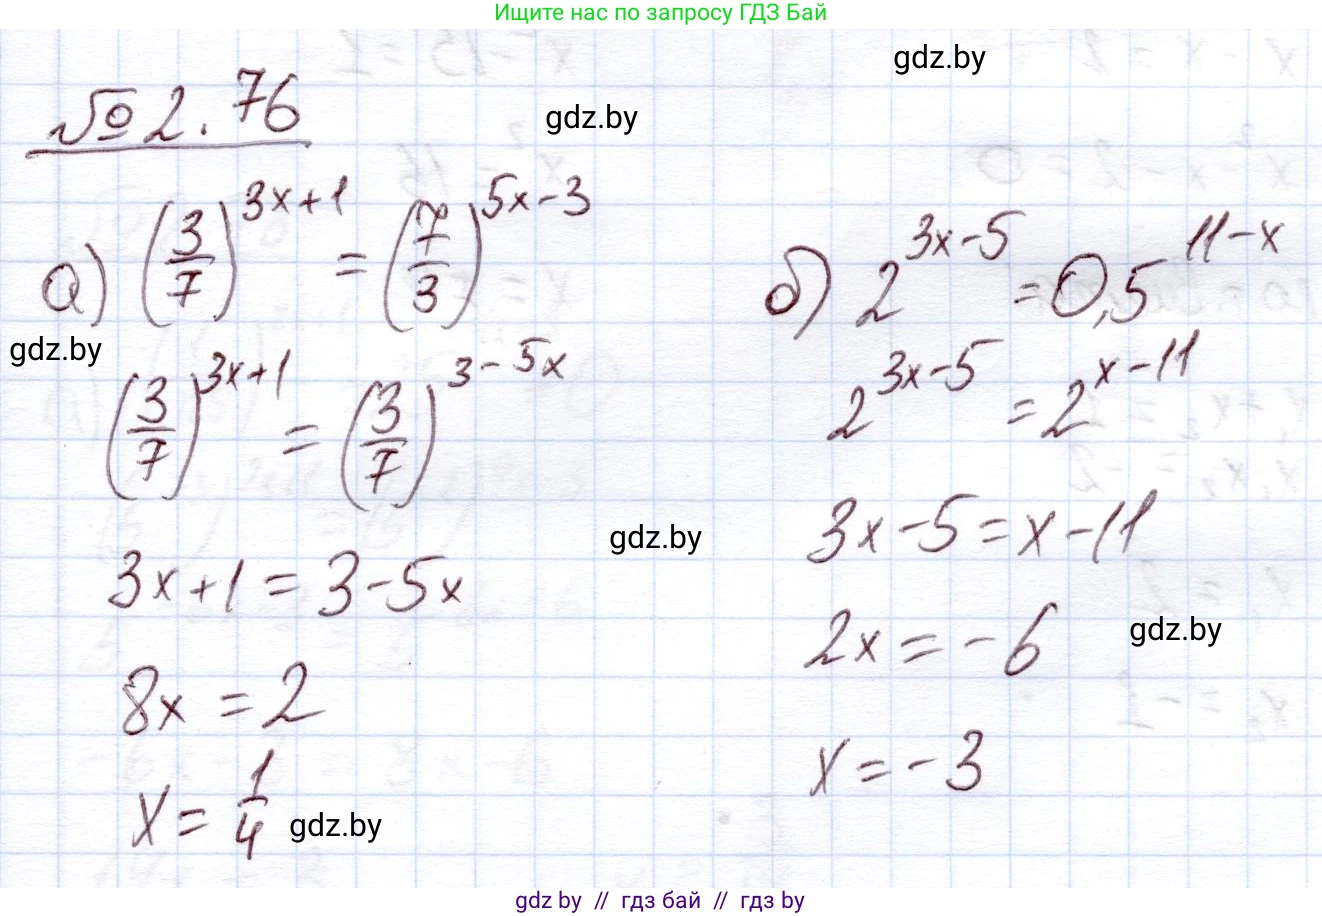 Ищите нас по запросу ГДЗ Бай
gdz.by
gdz.by
№ 2.76
а) (3/7)^(3x+1) = (7/3)^(5x-3)
(3/7)^(3x+1) = (3/7)^(3-5x)
3x+1 = 3-5x
8x = 2
x = 1/4
gdz.by
gdz.by
б) 2^(3x-5) = 0,5^(11-x)
2^(3x-5) = 2^(x-11)
3x-5 = x-11
2x = -6
x = -3
gdz.by
gdz.by
gdz by // гдз бай // гдз by